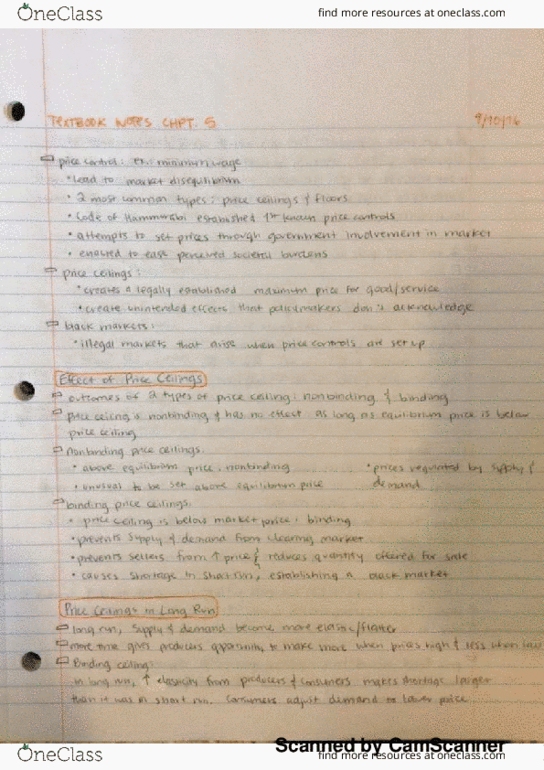 OneClass
find more resources at oneclass.com
TEXTBOOK NOTES CHPT. 5
9/10/16
price control: ex: minimum wage
• lead to market disequilibrium
• 2 most common types: price ceilings & floors
• Code of Hammurabi established 1st known price controls
• attempts to set prices through government involvement in market
• enacted to ease perceived societal burdens
price ceilings:
• creates a legally established maximum price for good/service
• create unintended effects that policymakers don't acknowledge
black markets:
• illegal markets that arise when price controls are set up
Effect of Price Ceilings
outcomes of 2 types of price ceiling: nonbinding & binding
price ceiling is nonbinding & has no effect as long as equilibrium price is below
price ceiling
nonbinding price ceilings:
• above equilibrium price: nonbinding
• prices regulated by supply &
• unusual to be set above equilibrium price
demand
binding price ceilings:
• price ceiling is below market price: binding
• prevents supply & demand from clearing market
• prevents sellers from ↑ price & reduces quantity offered for sale
• causes shortage in short run, establishing a black market
Price Ceilings in Long Run
long run, supply & demand become more elastic/flatter
more time gives producers opportunity to make more when prices high & less when low
Binding ceiling:
in long run, ↑ elasticity from producers & consumers makes shortage larger
than it was in short run. Consumers adjust demand to lower price
Scanned by CamScanner
OneClass
find more resources at oneclass.com